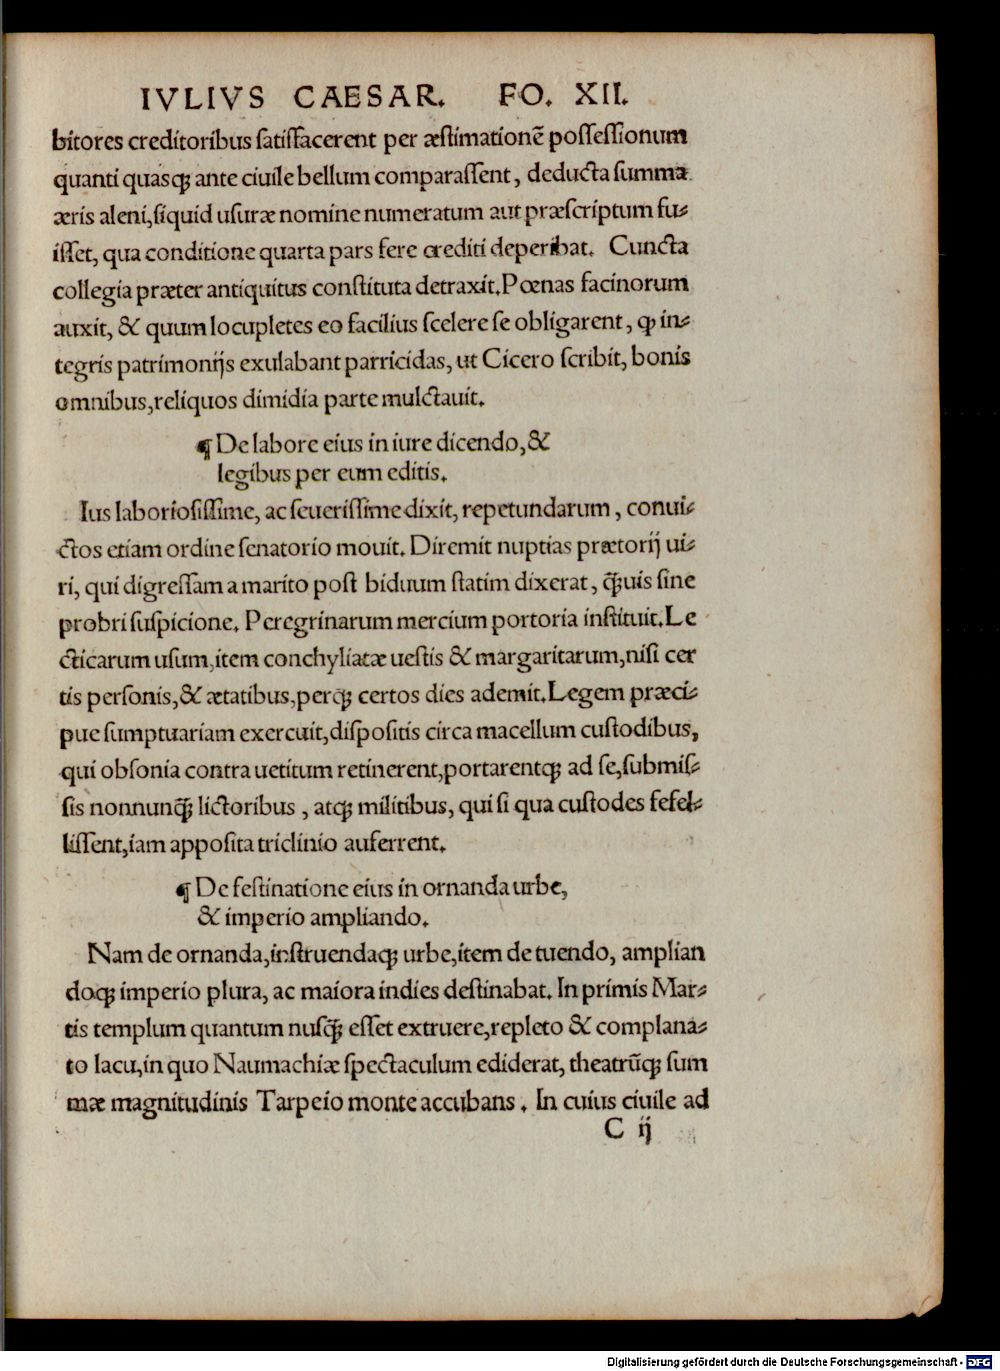 IVLIVS CAESAR. FO. XII.
bitores creditoribus satisfacerent per æstimationē possessionum
quanti quasqꝫ ante ciuile bellum comparassent, deducta summa
æris aleni, siquid usuræ nomine numeratum aut præscriptum fu⸗
isset, qua conditione quarta pars fere crediti deperibat. Cuncta
collegia præter antiquitus constituta detraxit. Pœnas facinorum
auxit, & quum locupletes eo facilius scelere se obligarent, ꝙ in⸗
tegris patrimonijs exulabant parricidas, ut Cicero scribit, bonis
omnibus, reliquos dimidia parte mulctauit.
¶ De labore eius in iure dicendo, &
legibus per eum editis.
Ius laboriosissime, ac seuerissime dixit, repetundarum, conui⸗
ctos etiam ordine senatorio mouit. Diremit nuptias prætorij ui⸗
ri, qui digressam a marito post biduum statim dixerat, q̃uis sine
probri suspicione. Peregrinarum mercium portoria instituit. Le
cticarum usum, item conchyliatæ uestis & margaritarum, nisi cer
tis personis, & ætatibus, perqꝫ certos dies ademit. Legem præci⸗
pue sumptuariam exercuit, dispositis circa macellum custodibus,
qui obsonia contra uetitum retinerent, portarentqꝫ ad se, submis⸗
sis nonnunq̃ lictoribus, atqꝫ militibus, qui si qua custodes fefel⸗
lissent, iam apposita triclinio auferrent.
¶ De festinatione eius in ornanda urbe,
& imperio ampliando.
Nam de ornanda, instruendaqꝫ urbe, item de tuendo, amplian
doqꝫ imperio plura, ac maiora indies destinabat. In primis Mar⸗
tis templum quantum nusq̃ esset extruere, repleto & complana⸗
to lacu, in quo Naumachiæ spectaculum ediderat, theatrūqꝫ sum
mæ magnitudinis Tarpeio monte accubans. In cuius ciuile ad
C ij
Digitalisierung gefördert durch die Deutsche Forschungsgemeinschaft - DFG